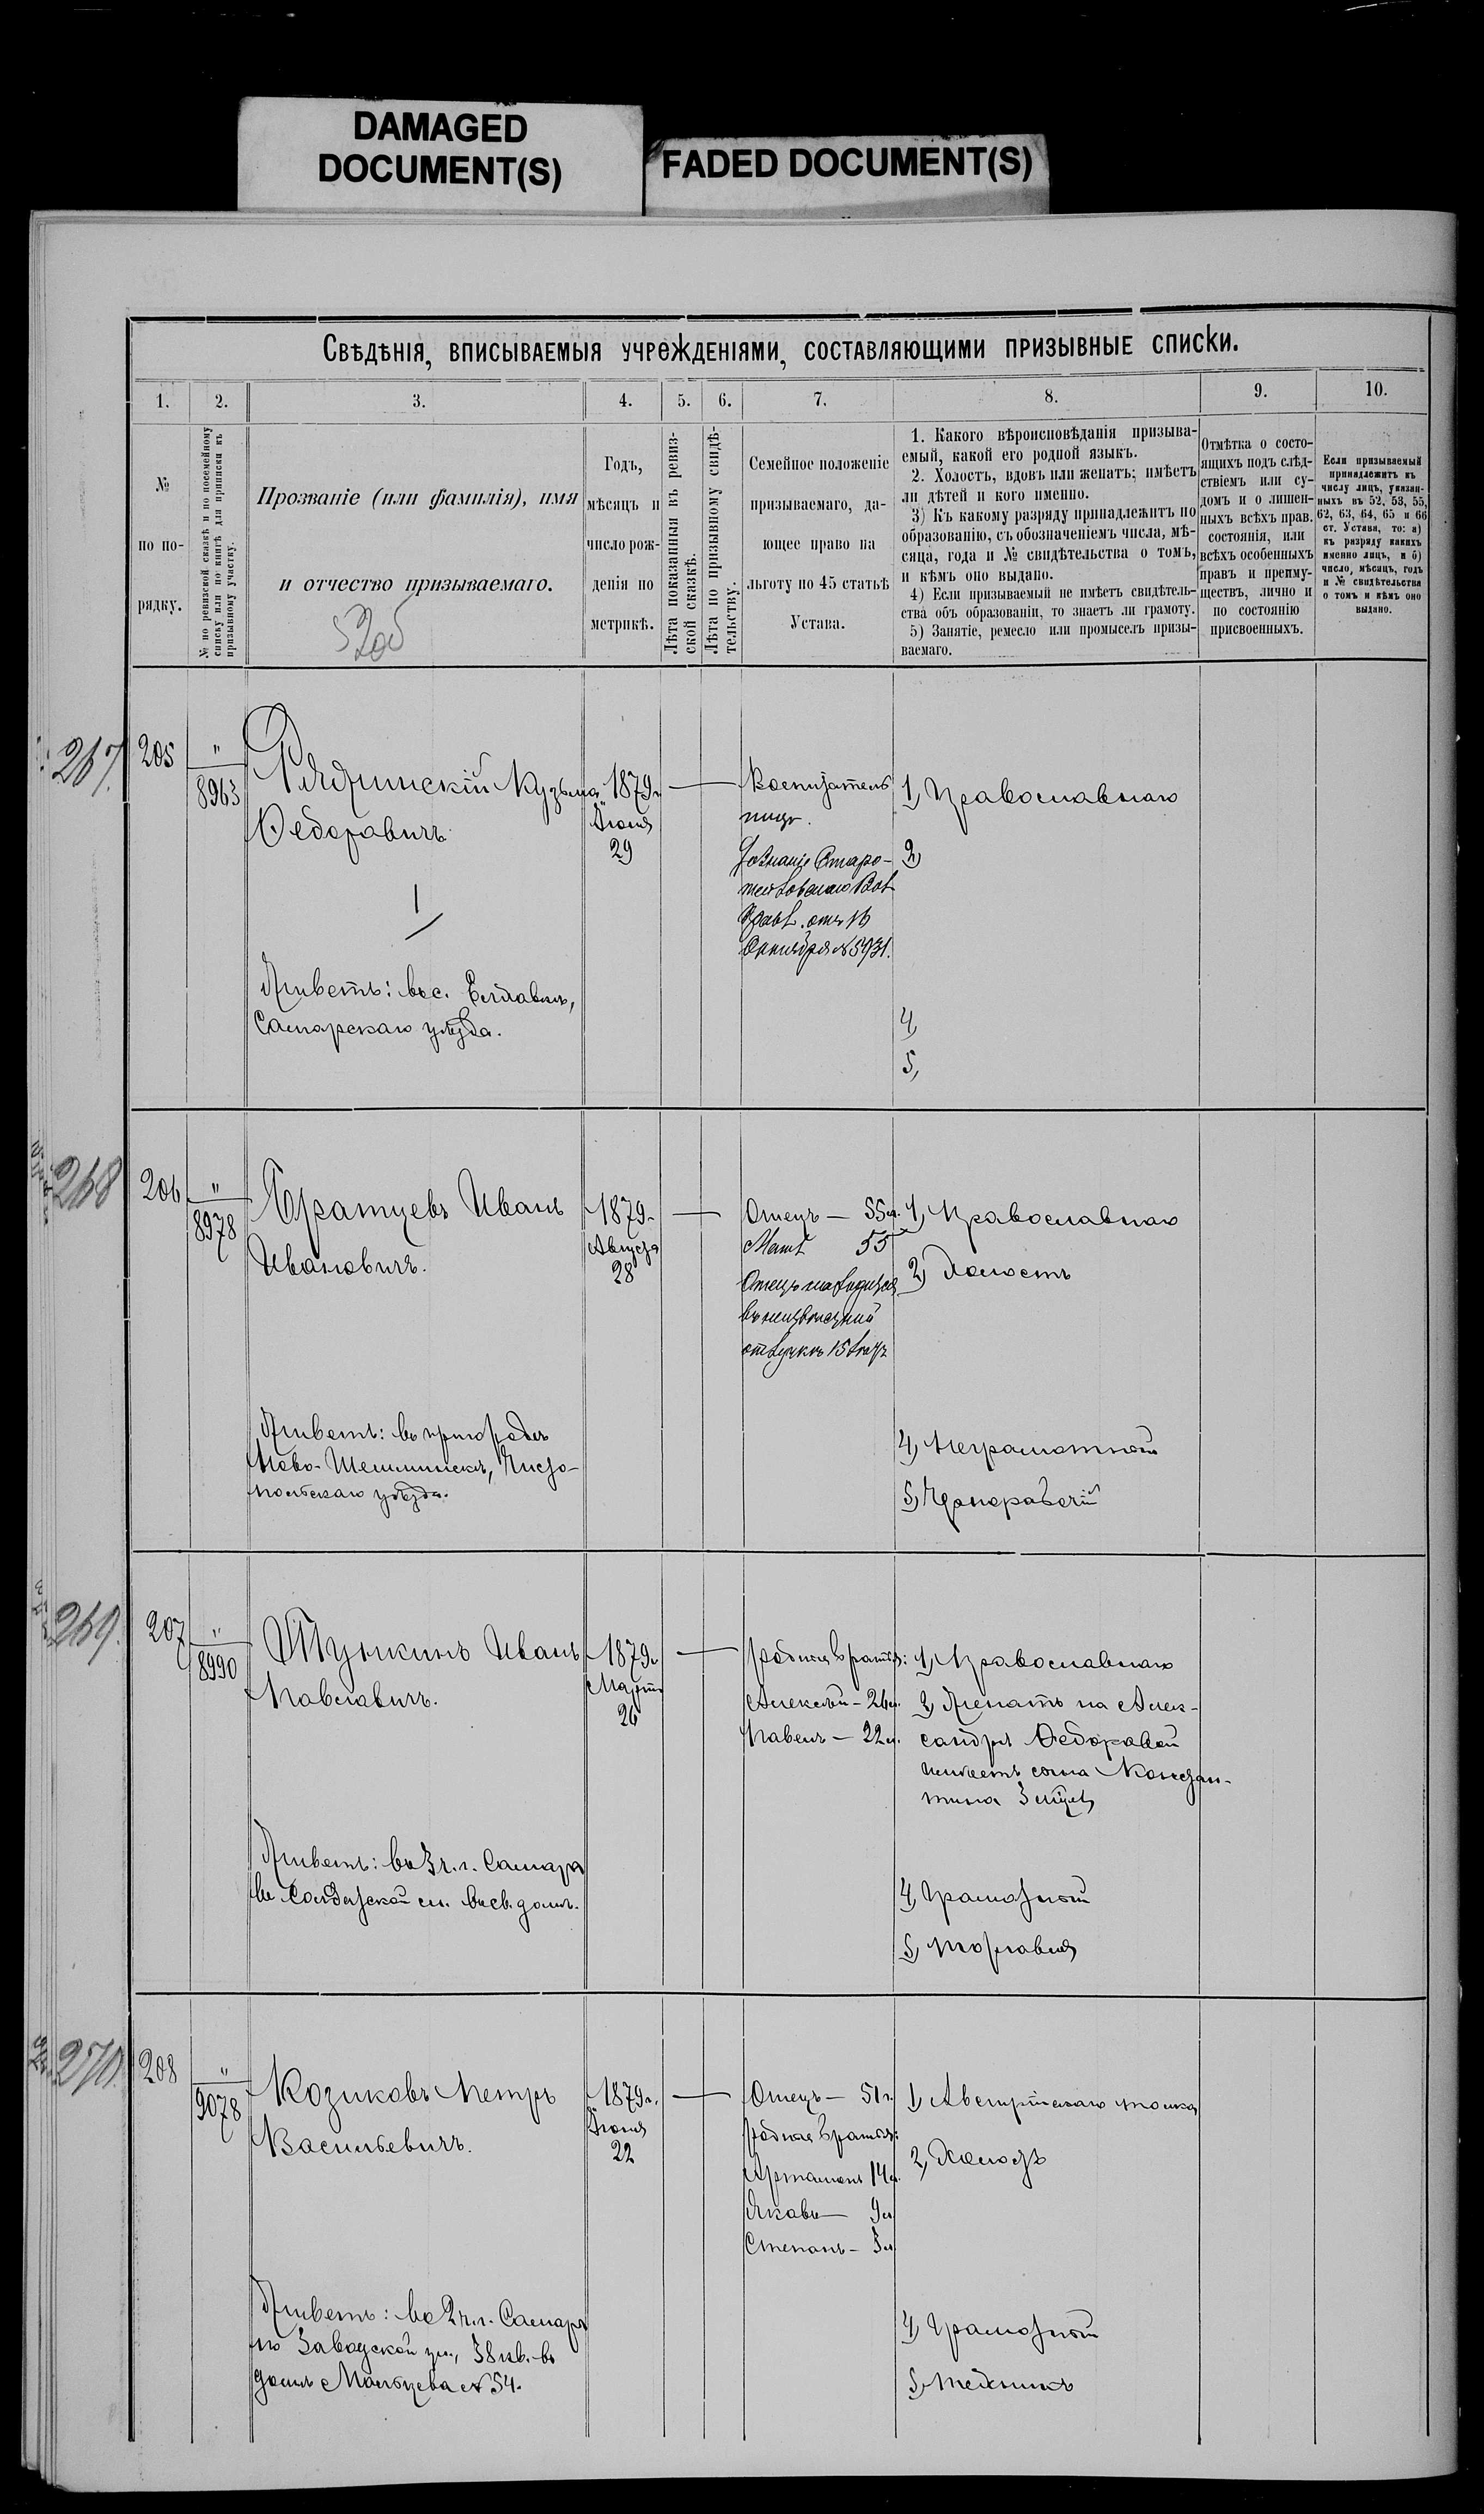 DAMAGED
DOCUMENT(S)
FADED DOCUMENT(S)
Свѣдѣнія, вписываемыя учрежденіями, составляющими призывные списки.
1. 2. 3. 4. 5. 6. 7. 8. 9. 10.
№
по по-
рядку.
№ по ревизской сказкѣ и по посемейному
списку или по книгѣ для приписки къ
призывному участку.
Прозваніе (или фамилія), имя
и отчество призываемаго.
Годъ,
мѣсяцъ и
число рож-
денія по
метрикѣ.
Лѣта показанныя въ ревиз-
ской сказкѣ.
Лѣта по призывному свидѣ-
тельству.
Семейное положеніе
призываемаго, да-
ющее право на
льготу по 45 статьѣ
Устава.
1. Какого вѣроисповѣданія призыва-
емый, какой его родной языкъ.
2. Холостъ, вдовъ или женатъ; имѣетъ
ли дѣтей и кого именно.
3) Къ какому разряду принадлежитъ по
образованію, съ обозначеніемъ числа, мѣ-
сяца, года и № свидѣтельства о томъ,
и кѣмъ оно выдано.
4) Если призываемый не имѣетъ свидѣтель-
ства объ образованіи, то знаетъ ли грамоту.
5) Занятіе, ремесло или промыселъ призы-
ваемаго.
Отмѣтка о состо-
ящихъ подъ слѣд-
ствіемъ или су-
домъ и о лишен-
ныхъ всѣхъ прав.
состоянія, или
всѣхъ особенныхъ
правъ и преиму-
ществъ, лично и
по состоянію
присвоенныхъ.
Если призываемый
принадлежитъ къ
числу лицъ, указан-
ныхъ въ 52, 53, 55,
62, 63, 64, 65 и 66
ст. Устава, то: а)
къ разряду какихъ
именно лицъ, и б)
число, мѣсяцъ, годъ
и № свидѣтельства
о томъ и кѣмъ оно
выдано.
267.
205
"
8963
Кузьма
Федоровичъ
Живетъ: въ с.
Самарскаго уѣзда.
1879г.
Іюня
29
Воспитатель
16
Октября № 5931.
1, Православнаго
2,
4,
5,
268
206
"
8978
Братцевъ Иванъ
Ивановичъ.
Живетъ: въ пригородѣ
Ново-Шешминскѣ, Чисто-
польскаго уѣзда.
1879г.
Августа
28
Отецъ — 55л.
Мать 55
Отецъ находится
въ неизвѣстной
отлучкѣ 15 лѣтъ
1, Православнаго
2, Холостъ
4, Неграмотный
5, Чернорабочій
269.
207
"
8990
Тункинъ Иванъ
Павловичъ.
Живетъ: въ 3 ч. г. Самара
въ Солдатской ул. въ св. домѣ.
1879г.
Марта
26
родные братья:
Алексѣй - 26л.
Павелъ — 22л.
1, Православнаго
2, Женатъ на Алек-
сандрѣ Федоровой
имѣетъ сына Констан-
тина
4, Грамотный
5, Торговля
270.
208
"
9078
Козиковъ Петръ
Васильевичъ.
Живетъ: во 2 ч. г. Самары
по Заводской ул., 38 кв. въ
домѣ Мальцева № 54.
1879г.
Іюня
22
Отецъ — 51г.
родные братья:
Артамонъ 14л.
Яковъ — 9л
Степанъ — 3л
1, Австрійскаго толка
2, Холостъ
4, Грамотный
5,